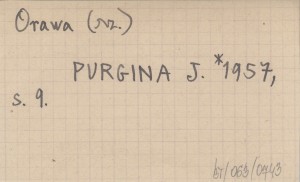 Orawa (rz.)
PURGINA J. *1957,
s. 9.
67/063/0443